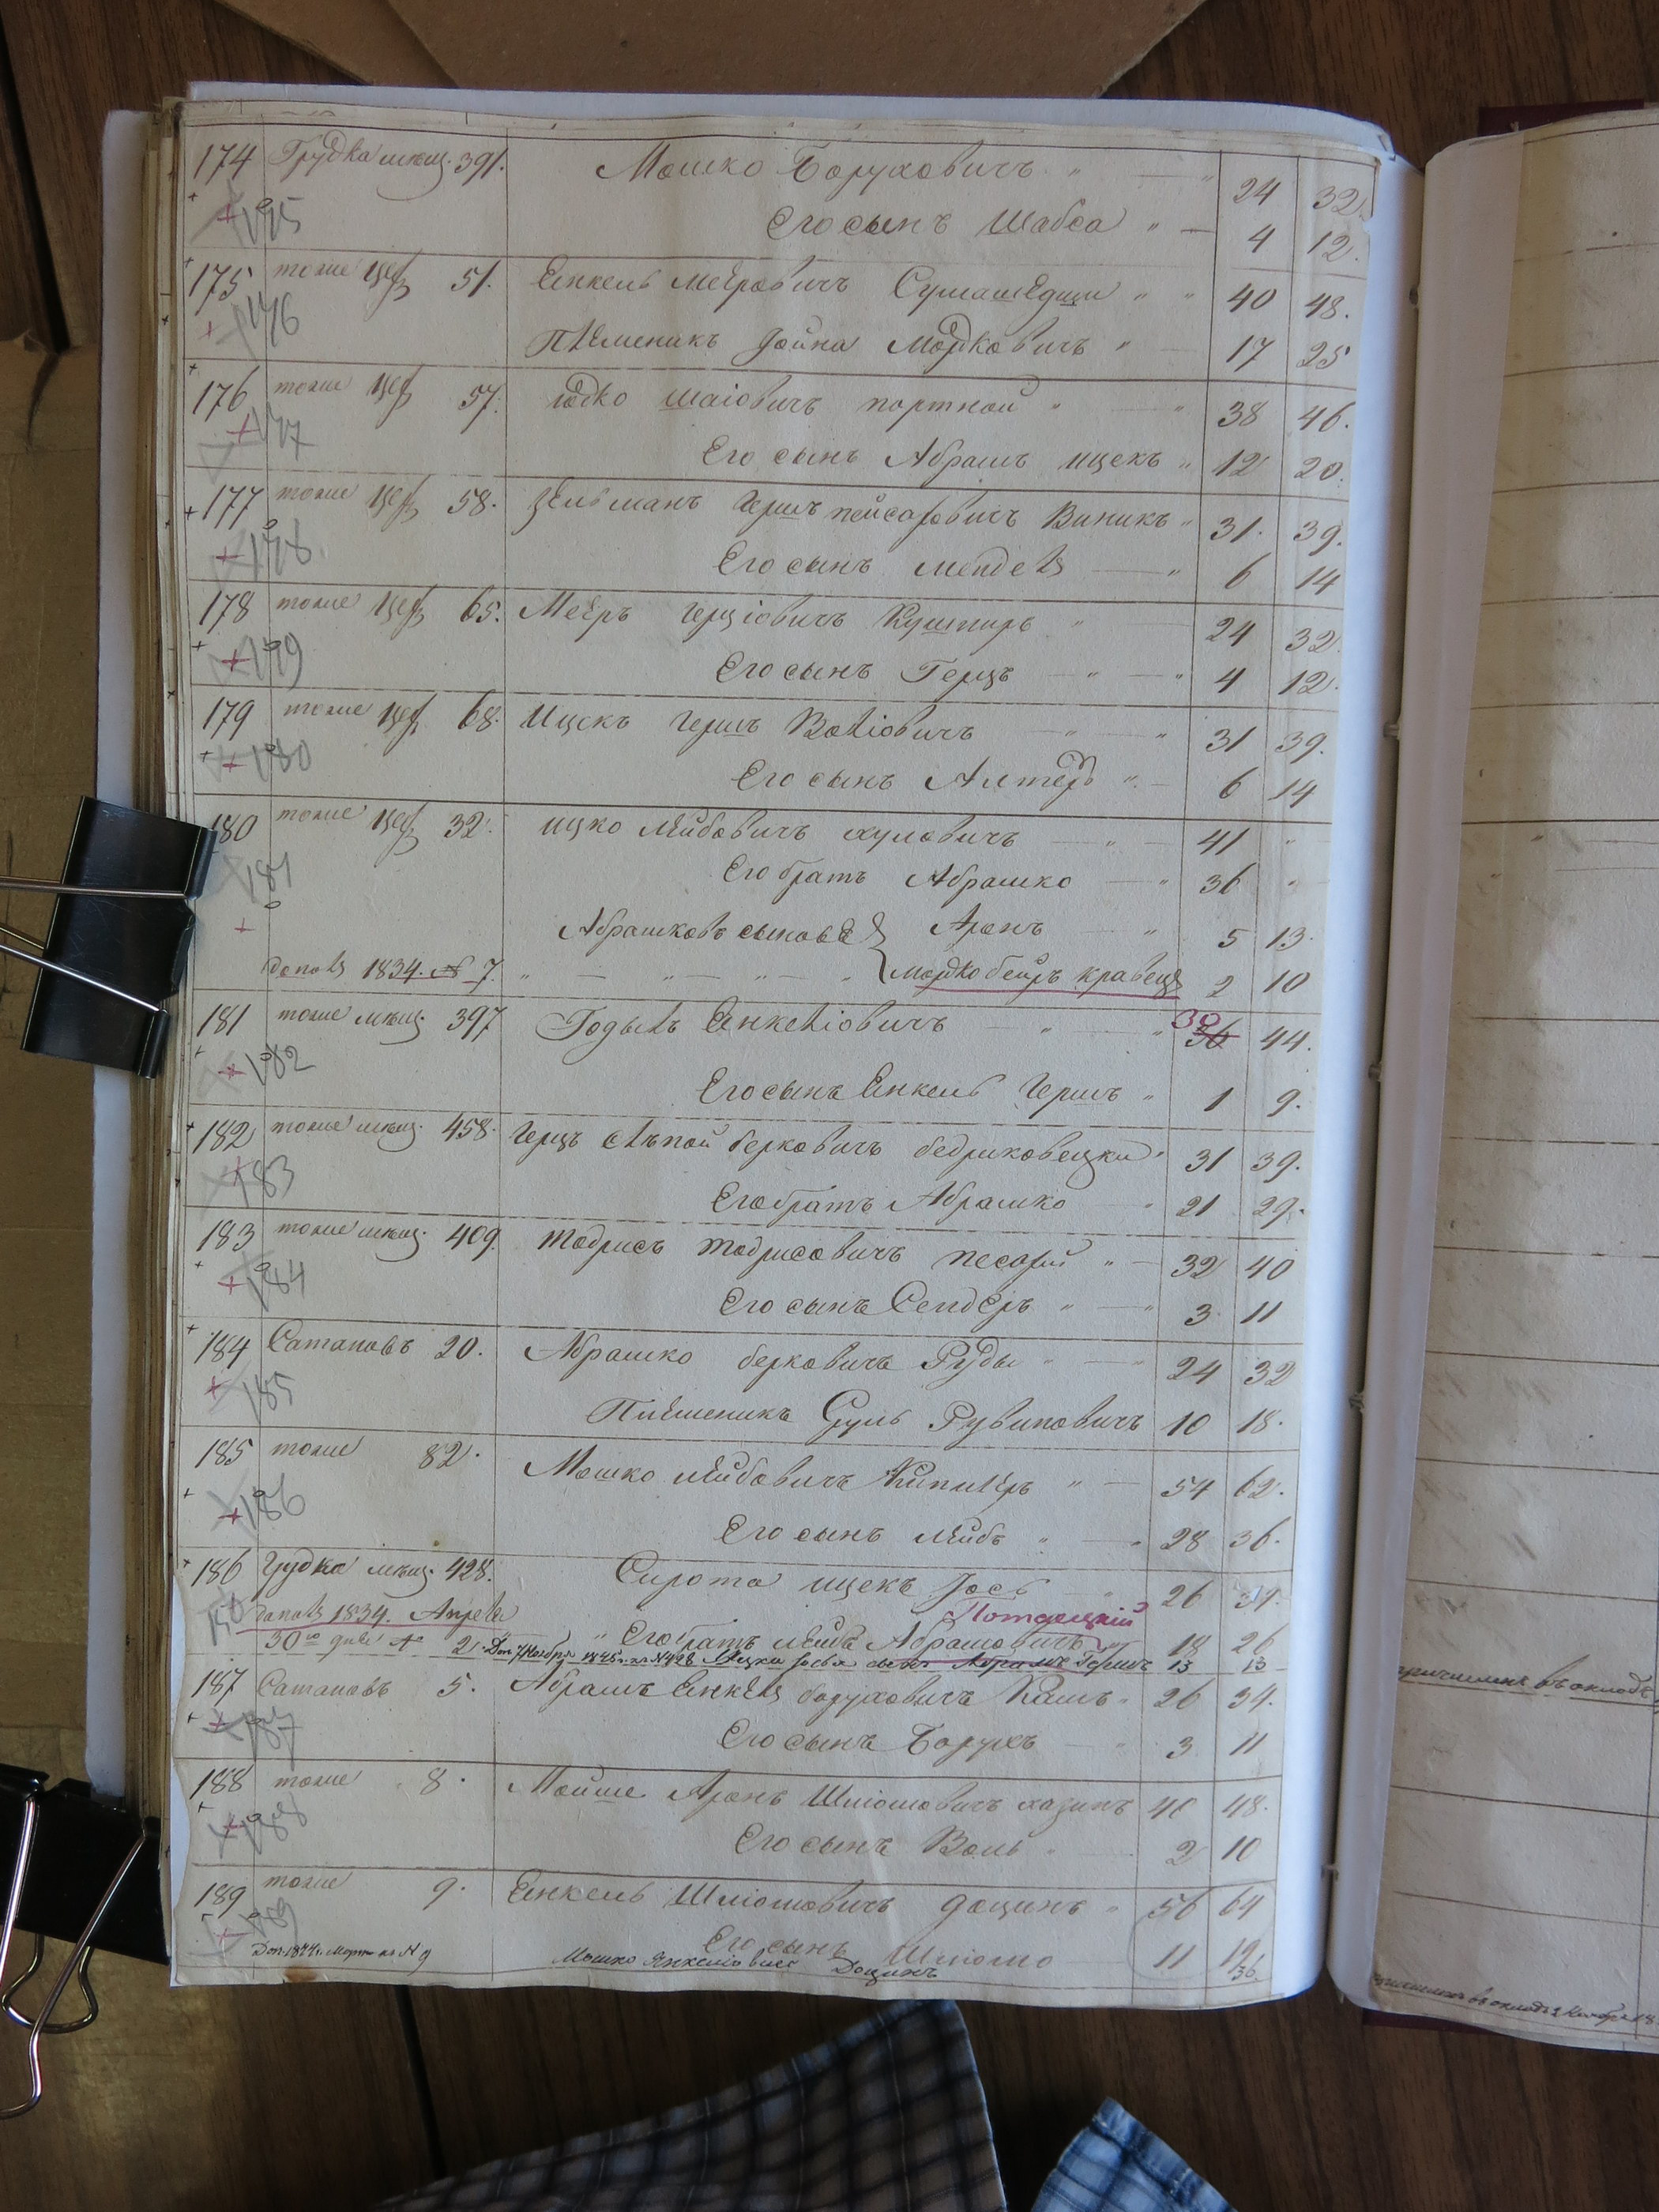 174 Грудка мещ. 391. Мошко Борухович ъ " — " 24 32.
+ 175 Его сынъ Шабса " — 4 12.
175 тоже цех 51. Енкель Меёровичъ Сумашедши " " 40 48.
+ 176 Племеникъ Іойна Мордковичъ " — 17 25
176 тоже цех 57. юдко шаіовичъ портной " — " 38 46.
+ 177 Его сынъ Абрамъ ицекъ " 12 20.
177 тоже цех 58. Зельманъ Герш пейсаховичъ Виникъ " 31. 39.
+ 178. Его сынъ мендель — " 6 14
178 тоже цех 65. Меёръ герціовичъ Кушниръ " — 24 32
+ 179 Его сынъ Герцъ — " — " 4 12.
179 тоже цех 68. Ицекъ герш Воліовичъ — " — " 31 39.
+ 180 Его сынъ Алтеръ " — 6 14
180 тоже цех 32. ицко лейбовичъ хуловичъ — " — 41 "
181 Его братъ Абрашко — " 36 "
+ Абрашковъ сыновѣ Аронъ — " 5 13.
дополъ 1834. № 7. " — " — " — " мордко беиръ кравецъ 2 10
181 тоже мещ. 397 Годыль Енкеліовичъ — " — " 30 36 44.
+ 182 Его сынъ Енкель Герш " 1 9.
182 тоже мещ. 458. Герцъ слѣпой берковичъ бедриковецки " 31 39.
183 Его братъ Абрашко " 21 29.
183 тоже мещ. 409. тодрисъ тодрисовичъ " — 32 40
+ 184 Его сынъ Сендеръ " — " 3 11
184 Сатановъ 20. Абрашко берковичъ Руды " — " 24 32
+ 185 Племеникъ Сруль Рувиновичъ 10 18.
185 тоже 82. Мошко лейбовичъ " — 54 62.
+ 186 Его сынъ лейбъ " — " 28 36.
186 Грудка мещ. 428. Сирота ицекъ Іось " 26 34.
дополъ 1834. Апреля Потдецкій
30го дня № 2. " Его братъ лейбъ Абрамовичъ " 18 26
Доп. 7 Ноября 1845 г. за № 498 Ицки Іосья сынъ Абрамъ Гершъ 13 13
187 Сатановъ 5. Абрамъ Енкель боруховичъ Кашъ " 26 34.
+ 187 Его сынъ Борухъ — " 3 11
188 тоже 8. Мойше Аронъ Шліомовичъ хазинъ 40 48.
+ 188 Его сынъ Воль " — 2 10
189 тоже 9. Енкель Шліомовичъ доцинъ " 56 64
+ 189 Его сынъ Шліомо 11 19
Доп. 1844 г. Март за № 9 Мошко Янкеліовичъ Доцинъ 36
причисленъ въ окладъ
причисленъ въ окладъ 2 Ноября 18